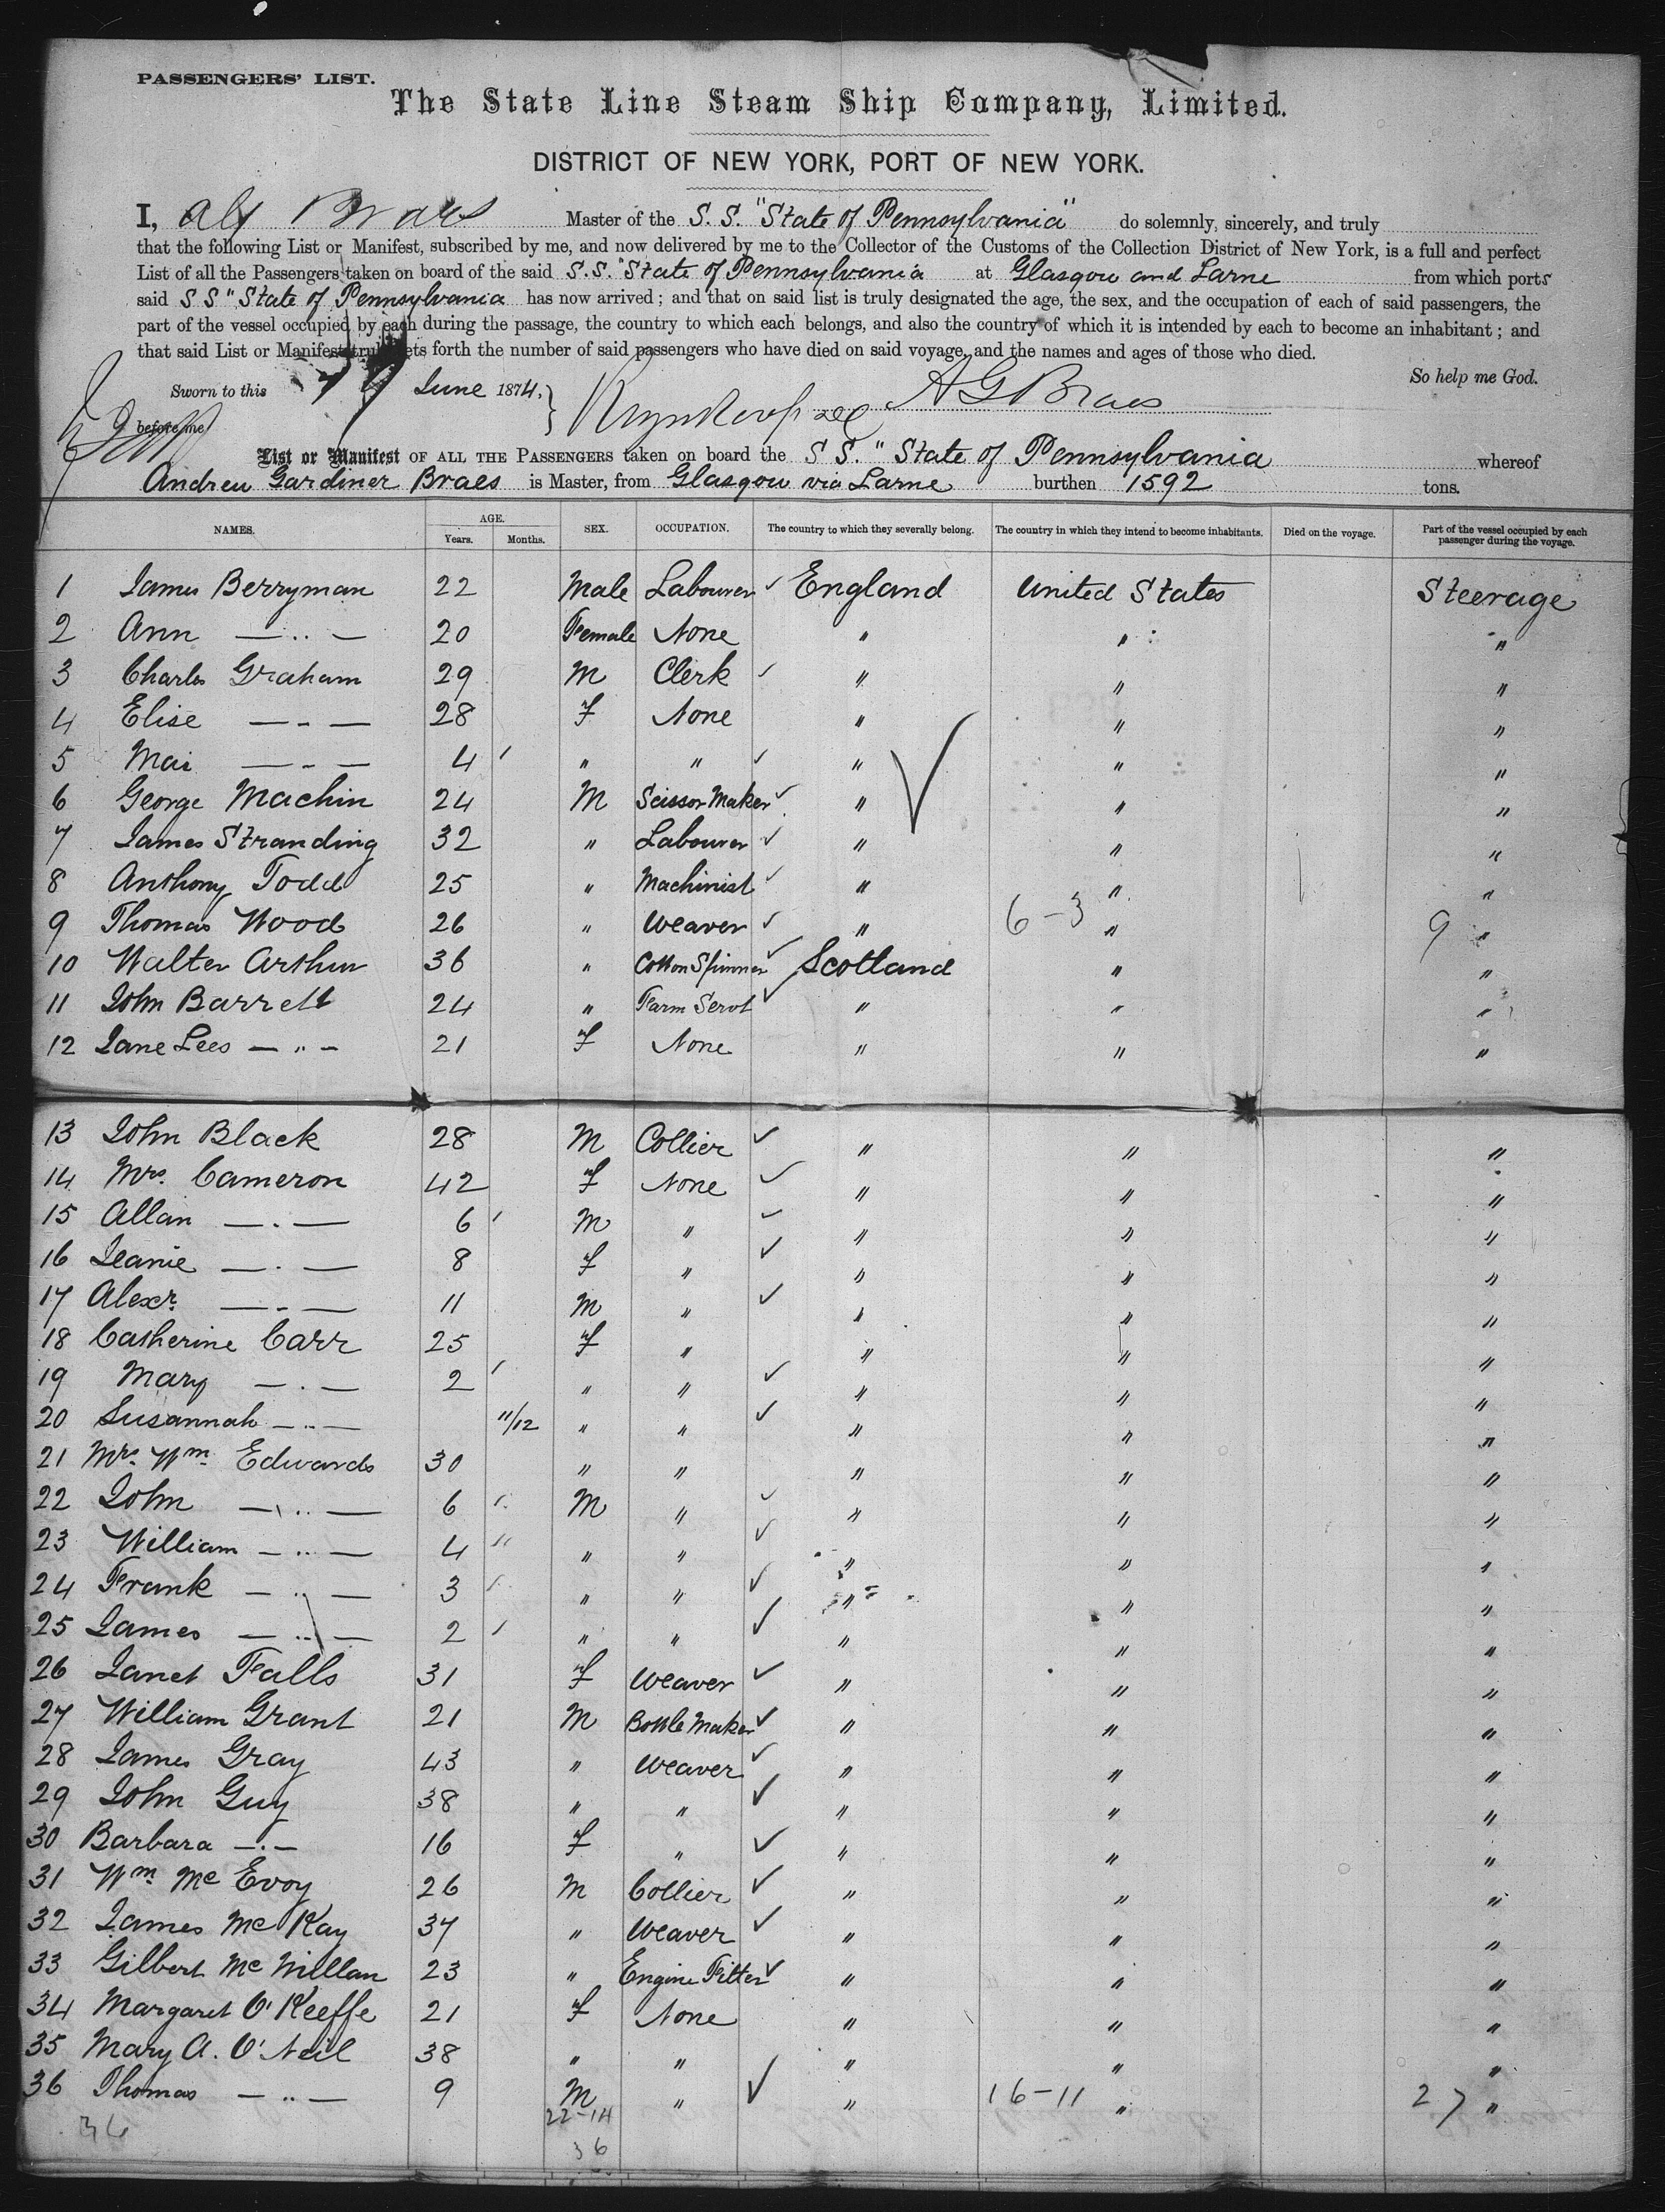 PASSENGERS' LIST.
The State Line Steam Ship Company, Limited.
DISTRICT OF NEW YORK, PORT OF NEW YORK.
I, Alf Braes Master of the S. S. "State of Pennsylvania" do solemnly, sincerely, and truly
that the following List or Manifest, subscribed by me, and now delivered by me to the Collector of the Customs of the Collection District of New York, is a full and perfect
List of all the Passengers taken on board of the said S.S. "State of Pennsylvania at Glasgow and Larne from which ports
said S S "State of Pennsylvania has now arrived; and that on said list is truly designated the age, the sex, and the occupation of each of said passengers, the
part of the vessel occupied by each during the passage, the country to which each belongs, and also the country of which it is intended by each to become an inhabitant; and
that said List or Manifest truly sets forth the number of said passengers who have died on said voyage, and the names and ages of those who died.
So help me God.
Sworn to this June 1874. A G Braes
before me
List or Manifest OF ALL THE PASSENGERS taken on board the S S. "State of Pennsylvania whereof
Andrew Gardiner Braes is Master, from Glasgow via Larne burthen 1592 tons.
NAMES. AGE. Years. Months. SEX. OCCUPATION. The country to which they severally belong. The country in which they intend to become inhabitants. Died on the voyage. Part of the vessel occupied by each passenger during the voyage.
1 James Berryman 22 Male Labourer ✓ England United States Steerage
2 Ann — " — 20 Female None " " "
3 Charles Graham 29 M Clerk ✓ " " "
4 Elise — " — 28 F None " " "
5 Mai — " — 4 " " ✓ " " "
6 George Machin 24 M Scissor Maker ✓ " " "
7 James Stranding 32 " Labourer ✓ " " "
8 Anthony Todd 25 " Machinist ✓ " " "
9 Thomas Wood 26 " Weaver ✓ " 6-3 " 9 "
10 Walter Arthur 36 " Cotton Spinner ✓ Scotland " "
11 John Barrett 24 " Farm Servt ✓ " " "
12 Jane Lees — " — 21 F None " " "
13 John Black 28 M Collier ✓ " " "
14 Mrs. Cameron 42 F None ✓ " " "
15 Allan — " — 6 M " ✓ " " "
16 Jeanie — " — 8 F " ✓ " " "
17 Alexr. — " — 11 M " ✓ " " "
18 Catherine Carr 25 F " " " "
19 Mary — " — 2 " " ✓ " " "
20 Susannah — " — 11/12 " " ✓ " " "
21 Mrs. Wm. Edwards 30 " " " " "
22 John — " — 6 M " ✓ " " "
23 William — " — 4 " " ✓ " " "
24 Frank — " — 3 " " ✓ " " "
25 James — " — 2 " " ✓ " " "
26 Janet Falls 31 F Weaver ✓ " " "
27 William Grant 21 M Bottle Maker ✓ " " "
28 James Gray 43 " Weaver ✓ " " "
29 John Guy 38 " " ✓ " " "
30 Barbara — " — 16 F " ✓ " " "
31 Wm. Mc Evoy 26 M Collier ✓ " " "
32 James Mc Kay 37 " Weaver ✓ " " "
33 Gilbert Mc Millan 23 " Engine Fitter ✓ " " "
34 Margaret O'Keeffe 21 F None " " "
35 Mary A. O'Neil 38 " " " " "
36 Thomas — " — 9 M " ✓ " 16-11 " 27 "
36 22-14
36